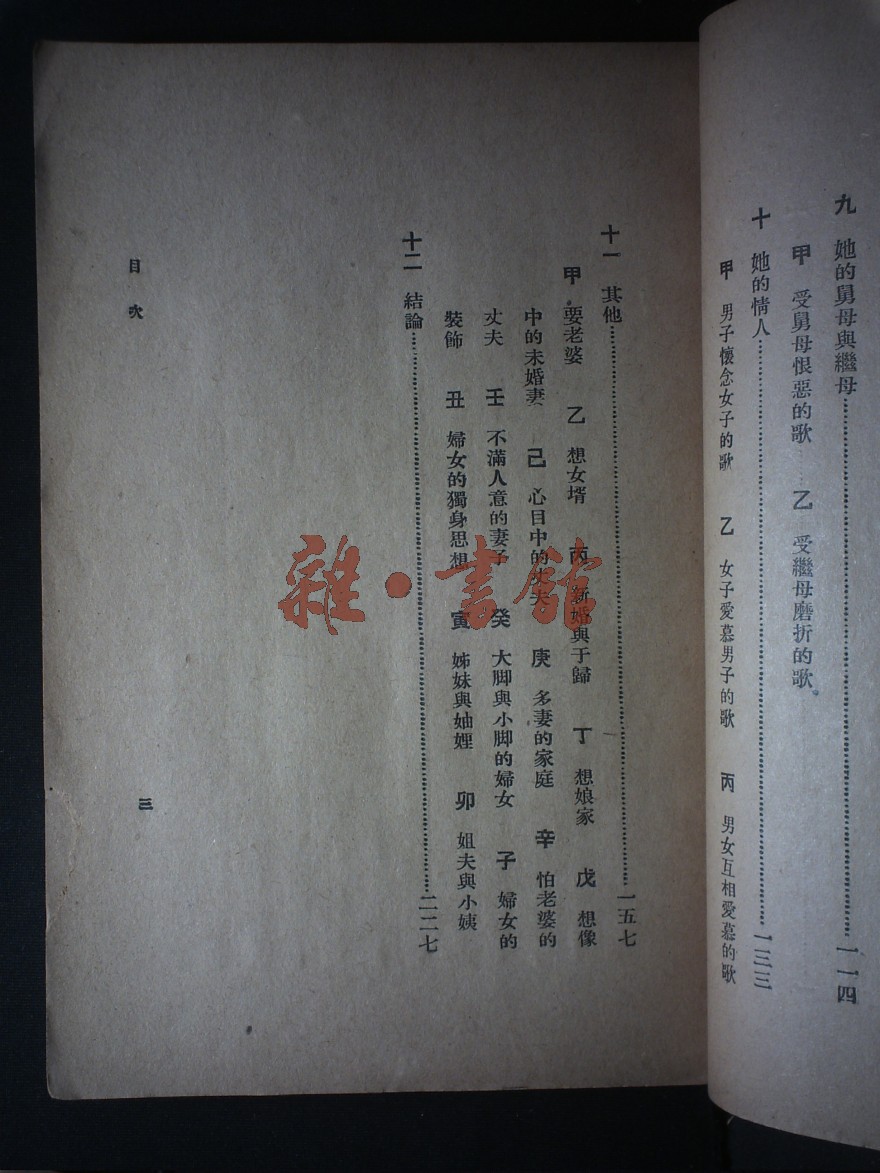 九　她的舅母與繼母……一一四
甲　受舅母恨惡的歌　乙　受繼母磨折的歌
十　她的情人……一三三
甲　男子懷念女子的歌　乙　女子愛慕男子的歌　丙　男女互相愛慕的歌
十一　其他……一五七
甲　要老婆　乙　想女壻　丙　新婚與于歸　丁　想娘家　戊　想像
中的未婚妻　己　心目中的丈夫　庚　多妻的家庭　辛　怕老婆的
丈夫　壬　不滿人意的妻子　癸　大脚與小脚的婦女　子　婦女的
裝飾　丑　婦女的獨身思想　寅　姊妹與妯娌　卯　姐夫與小姨
十二　結論……二二七
目次
三
雜·書館